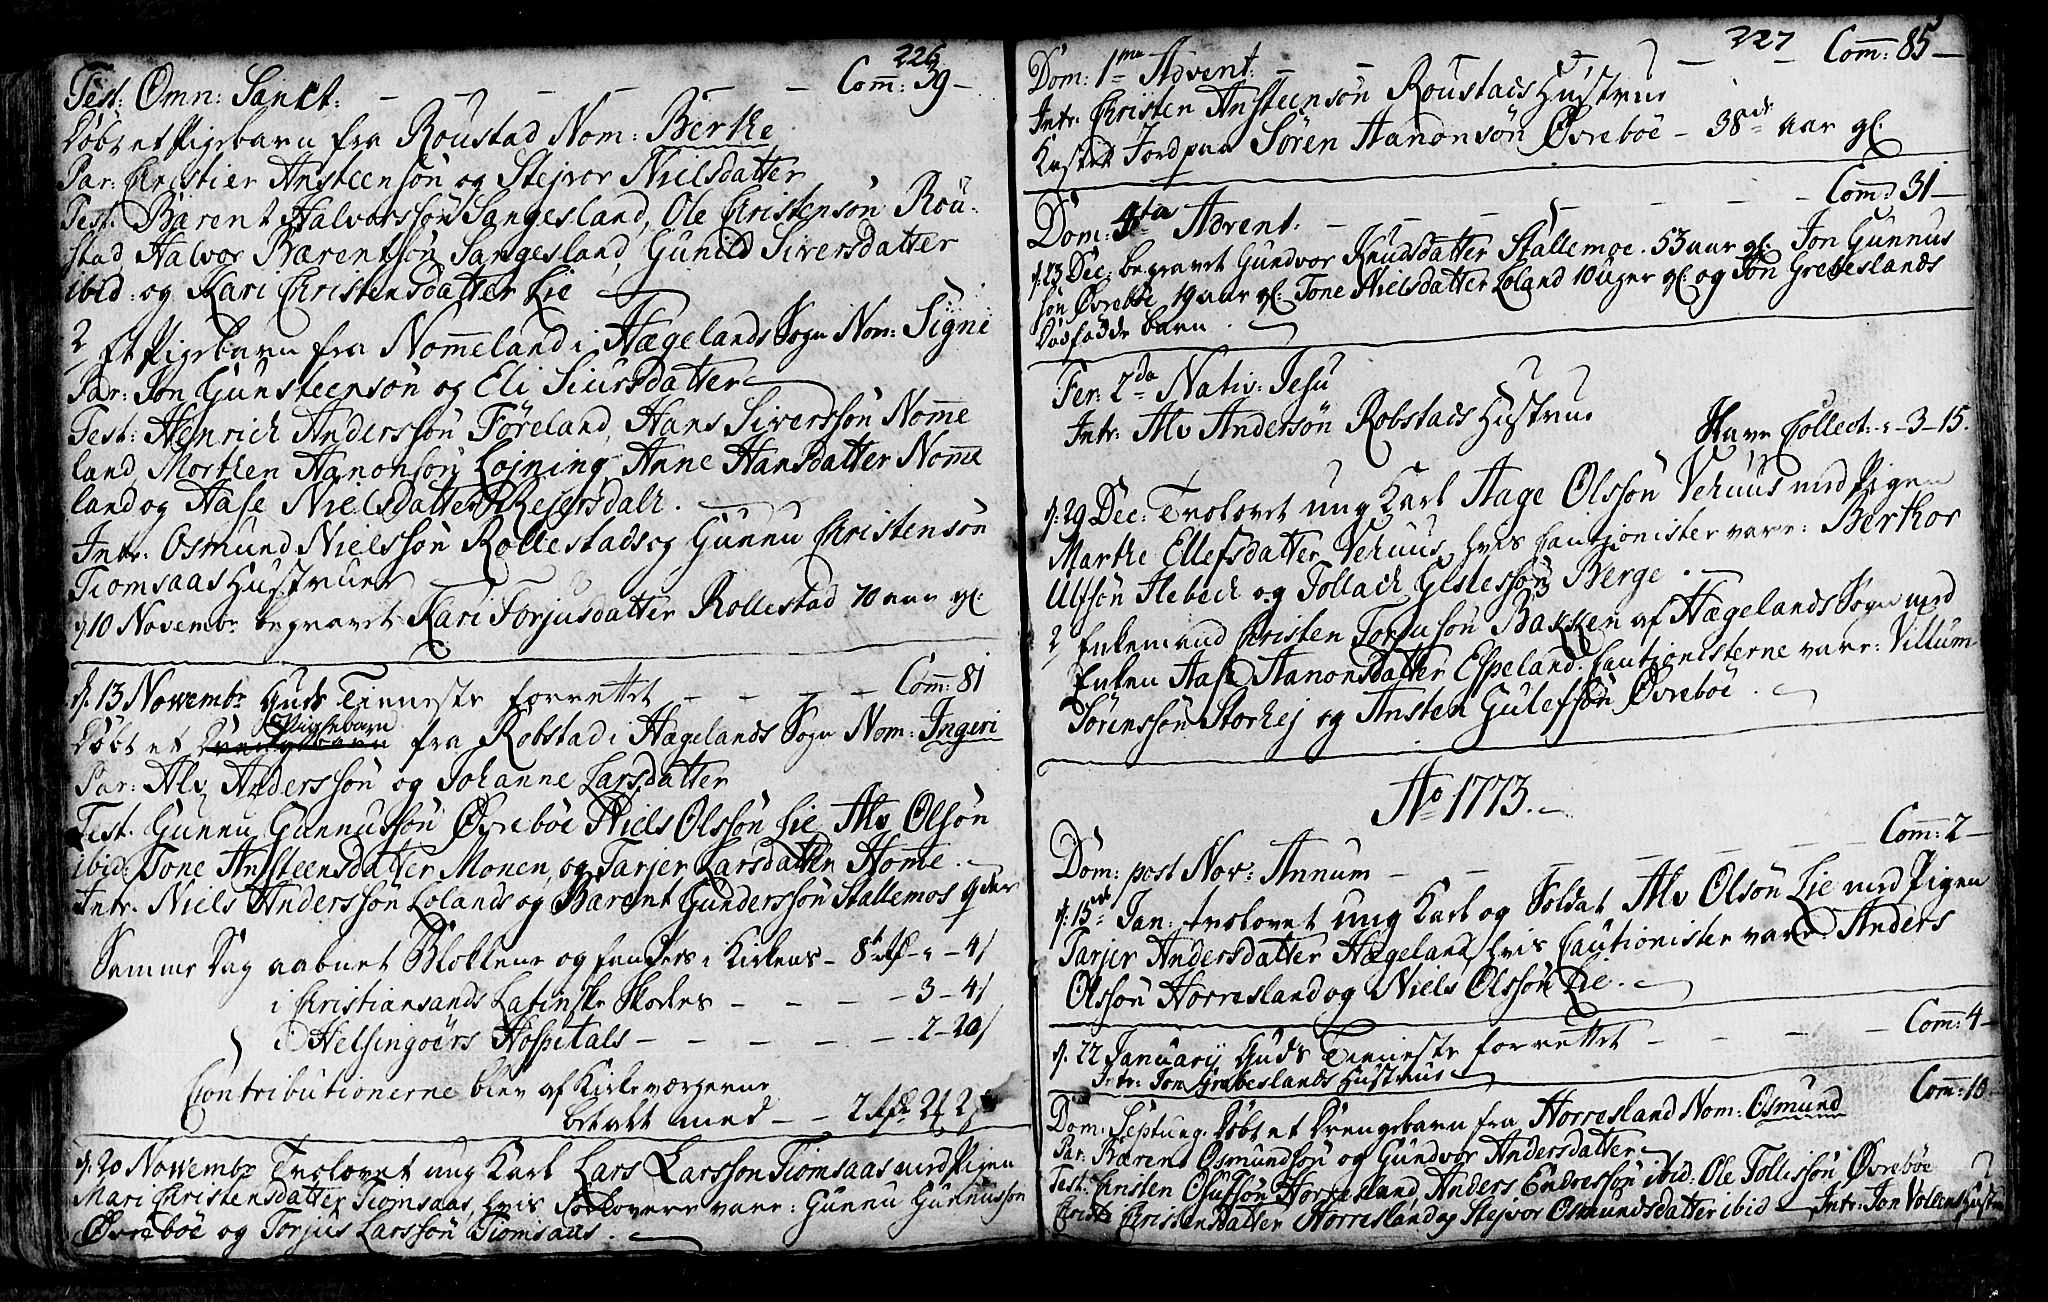 226
Fest: Omn: Sanct: - - - - - - Com̅: 39 -
Døbt et Pigebarn fra Roustad Nom: Berthe
Par: Christen Ansteensön og Stejvor Nielsdatter
Test: Barent Halvorssön Sangesland, Ole Christensön Rou-
stad, Halvor Barentsön Sangesland, Gunild Siversdatter
ibid: og Kari Christensdatter Lie
2/ Et Pigebarn fra Nom̅eland i Hægelands Sogn Nom: Signi
Par: Jon Gunsteensön og Eli Siursdatter
Test: Henrich Anderssön Föreland, Hans Siverssön Nom̅e
land, Morthen Hanonsön Löjning, Anne Hansdatter Nom̅e
land og Aase Nielsdatter Rejersdahl.
Intr: Osmund Nielssön Rollestads og Gunnu Christensön
Tiomsaas Hustruer
d. 10 Novembr begravet Kari Torjusdatter Rollestad 70 aar gl:
d. 13 Novembr Guds Tieneste forrettet - - - - Com̅: 81
Döbt et Drengebarn Pigebarn fra Robstad i Hægelands Sogn Nom: Ingeri
Par: Alv Anderssön og Johanne Larsdatter
Test. Gunnu Gunnussön Øvreböe Niels Olssön Lie, Alv Olsön
ibid: Tone Ansteensdatter Monen, og Tarjer Larsdatter Home.
Intr. Niels Anderssön Lolands og Barent Gunderssön Stallemos
Samme Dag aabnet Blokkene og fandtes i Kirkens - 8 - 4/
i Christiansands Latinske Skoles - - - - 3 - 4/
i Helsingöers Hospitals - - - - - 2 - 20/
Contributionerne blev af Kirkeværgerne
betalt med - - 2
d. 20 Novembr Trolovet ung Karl Lars Larssön Tiomsaas med Pigen
Mari Christensdatter Tiomsaas, hvis Forlovere vare: Gunnu Gunnussön
Øvreböe og Torjus Larssön Tiomsaas.
227
Dom: 1ma Advent: - - - - - Com̅: 85 -
Intr: Christen Ansteensön Roustads Hustrue
Kastet Jord paa Sören Hanonsön Øvreböe - 38 aar gl:
Dom: 4ta Advent: - - - - - - Com̅: 31 -
d. 23 Dec: begravet Gundvor Knudsdatter Stallemoe. 53 aar gl: Jon Gunnus
sön Øvreböe, 19 aar gl: Tone Nielsdatter Loland 10 uger gl og Jon Grebeslands
Dödfödde barn.
Fer: 2da Nativ: Jesu
Intr: Alv Andersön Robstads Hustrue
Collect: - 3 - 15.
d. 29 Dec: Trolovet ung Karl Aage Olssön Vehuus med Pigen
Marthe Ellefsdatter Vehuus, hvis Cautionister vare: Berthor
Ulfsön Hebech og Tollach Gislessön Berge.
2/ Enkemand Christen Torjusön Bakken af Hægelands Sogn med
Enken Aase Hanonsdatter Espeland. Cautionisterne vare: Villum
Sörenssön Storhej og Ansten Gulefsön Øvreböe.
Ao 1773.
Dom: post Nov: Annum - - - - - Com̅: 2 -
d. 15 Jan: trolovet ung Karl og Soldat Alv Olsön Lie med Pigen
Tarjer Andersdatter Hægeland, hvis Cautionister vare Anders
Olssön Horresland og Niels Olssön Lie.
d. 22 Januarij Guds Tieneste forrettet - - - - Com̅: 4 -
Intr: Jon Grebeslands Hustrue
Dom: Septuag. Döbt et Drengebarn fra Horresland Nom: Osmund Com̅: 10 -
Par. Barent Osmundsön og Gundvor Andersdatter
Test: Ansten Olufsön Horresland, Anders Endressön ibid: Ole Tollissön Øvreböe
Christensdatter Horresland og Stejvor Osmundsdatter ibid - Intr: Jon Volens Hustrue